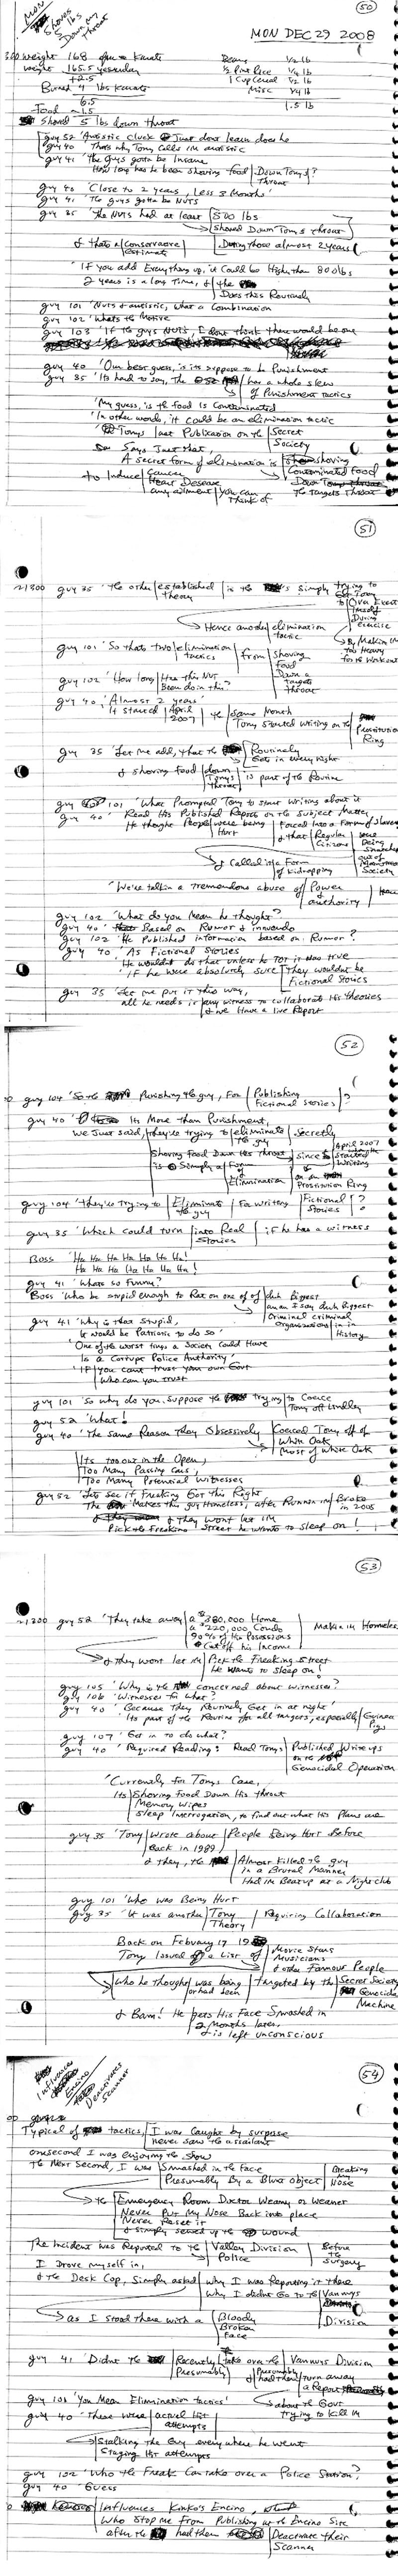 50
MON
Shoves
5 lbs
Down my
Throat
MON DEC 29 2008
weight 168 Karate
weight 165.5 yesterday
+2.5
Burned 4 lbs Karate
6.5
Food -1.5
Shoved 5 lbs down throat
Beans 1/2 lb
1/2 Pint Rice 1/4 lb
1 Cup Cereal 1/2 lb
Misc 1/4 lb
1.5 lb
guy 52 'Autistic Cluck Just dont learn does he
guy 40 'Thats why Tony Calls im autistic
guy 41 'The Guys gotta be Insane
How long has he been shoving food Down Tonys Throat?
guy 40 'Close to 2 years, Less 3 Months'
guy 41 'The guys gotta be NUTS
guy 35 'The NUTS had at least 500 lbs
Shoved Down Tonys throat
& thats a conservative estimate
During those almost 2 years
'If you add Everything up, it Could be High than 800 lbs
2 years is a long Time, & the
Does this Routinely
guy 101 'Nuts & autistic, what a Combination
guy 102 'Whats the Motive
guy 103 'If the guys NUTS, I dont think there would be one
guy 40 'Our best guess, is its suppose to be Punishment
guy 35 'Its hard to say, the has a whole slew
of Punishment tactics
'My guess, is the food is Contaminated
'In other words, it could be an elimination tactic
'Tonys last Publication on the Secret Society
Says Just that.
A secret form of elimination is shoving
Contaminated food
Down
The Targets Throat
to Induce Cancer
Heart Desease
any ailment you can
Think of
51
1300 guy 35 'the other established theory is the 's simply trying to
Get Tony
to Over Exert
himself
During
exercise
By Making im
too Heavy
for the workout
Hence another elimination tactic
guy 101 'So thats two elimination tactics from shoving
food
Down a
targets
throat
guy 102 'How long Has this NUT
Been doin this?'
guy 40 'Almost 2 years'
It started April 2007 the same Month
Tony Started writing on the Prostitution Ring
guy 35 'Let me add, that the Routinely
Gets in every night
& shoving food down Tonys throat is part of the Routine
guy 101 'What Prompted Tony to start Writing about it
guy 40 'Read His Published Reports on the Subject Matter
He thought People were being Hurt
Forced into a Form of Slavery
& that Regular Citizens were
Being
Snatched
out of
Mainstream
Society
& Called it a Form of kidnapping
'We're talkin a tremendous abuse of Power & authority here
guy 102 'What do you Mean he thought?'
guy 40 Based on Rumor & inuendo
guy 102 'He Published information based on Rumor?
guy 40 'As Fictional Stories
He wouldnt do that unless he Tot it was true
'If he were absolutely sure they wouldnt be
Fictional Stories
guy 35 'Let me put it this way,
all he needs is any witness to collaborate His theories
& we Have a live Report
52
guy 104 'So the Punishing the guy, For Publishing
Fictional stories?
guy 40 Its More than Punishment,
We Just said, they're trying to eliminate the guy Secretly
Shoving Food Down His throat is Simply a Form
of
Elimination
since April 2007
Started the
Writing
on a
Prostitution Ring
guy 104 'they're trying to Eliminate the guy For writing Fictional Stories?
guy 35 'Which could turn into Real Stories if he has a witness
Boss 'Ha Ha Ha Ha Ha Ha Ha!
Ha Ha Ha Ha Ha Ha Ha!
guy 41 'Whats so Funny?'
Boss 'Who be stupid enough to Rat on one of duh Biggest
an an I say duh Biggest
Criminal criminal
Organizations in in
History
guy 41 'Why is that Stupid,
It would be Patriotic to do so'
'One of the worst tings a Society Could Have
Is a Corrupt Police Authority'
'If you cant trust your own Govt
Who can you trust
guy 101 'So why do you Suppose the Trying to Coerce
Tony off Lindley
guy 52 'What!
guy 40 'The Same Reason They Obsessively Coerced Tony off of
White Oak
Most of White Oak
Its too out in the Open,
Too Many Passing Cars,
Too Many Potential Witnesses
guy 52 'Lets see if I Freaking Got this Right
The Makes this guy Homeless, after Runnin im Broke
in 2005
& they Wont let im
Pick the Freaking Street he wants to sleep on!
53
1300 guy 52 'They take away a $380,000 Home
a $220,000 Condo
90% of His Possessions
& Cut off his Income
Makin im Homeless
& they wont let im Pick the Freaking Street
He wants to Sleep on!
guy 105 'Why is the concerned about witnesses?
guy 106 'Witnesses for what?'
guy 40 'Because They Routinely Get in at night'
Its part of the Routine for all targets, especially Guinea Pigs
guy 107 'Get in to do what?
guy 40 'Required Reading: Read Tonys Published Write ups
on the
Genocidal Operation
'Currently for Tonys Case,
Its Shoving Food Down His throat
Memory Wipes
Sleep Interrogation, to find out what His Plans are
guy 35 'Tony Wrote about People Being Hurt Before
Back in 1989
& they, the Almost Killed the guy
in a Brutal Manner
Had im Beat up at a Nightclub
guy 101 'Who was Being Hurt
guy 35 'It was another Tony Theory Requiring Collaboration
Back on February 17 19
Tony Issued a List of Movie Stars
Musicians
& other Famous People
Who he thought was being
or had been
Targeted by the Secret Society
Genocide
Machine
& Bam! He gets His Face Smashed in
2 Months later
& is left unconscious
54
Influences
Encino
Deactivates
Scanner
Typical of tactics, I was Caught by surprise
Never saw the assailant
one second I was enjoying the Show
The Next Second, I was Smashed in the Face
Presumably By a Blunt object
Breaking
my
Nose
the Emergency Room Doctor Weamy or Weamer
Never Put My Nose Back into place
Never Reset it
& simply sewed up the wound
The Incident was Reported to the Valley Division
Police
Before
the
Surgery
I Drove myself in,
& the Desk Cop, Simply asked Why I was Reporting it there
Why I didnt Go to the Vannuys
Division
as I stood There with a Bloody
Broken
Face
guy 41 'Didnt the Recently
Presumably
take over the Vannuys Division
& Presumably
had them turn away
a Report
about the Govt
Trying to kill im
guy 101 'You Mean Elimination tactics'
guy 40 'These were actual Hit
attempts
Stalking the Guy every where he went
Staging Hit attempts
guy 102 'Who the Freak Can take over a Police Station?'
guy 40 'Guess
Influences Kinko's Encino,
Who Stop me From Publishing at the Encino Site
after the had them Deactivate their
Scanner